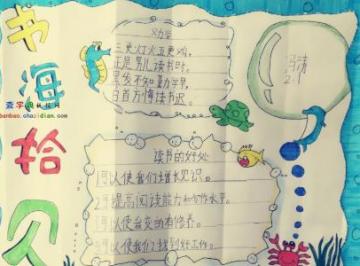 书海拾贝
查字典
banbao.chazidian.com
三更灯火五更鸡,
正是男儿读书时。
黑发不知勤学早,
白首方悔读书迟。
读书的好处
1可以使我们增长见识。
2可提高阅读能力和写作水平。
3可以使会变的有修养。
4可以使我们找到好工作。